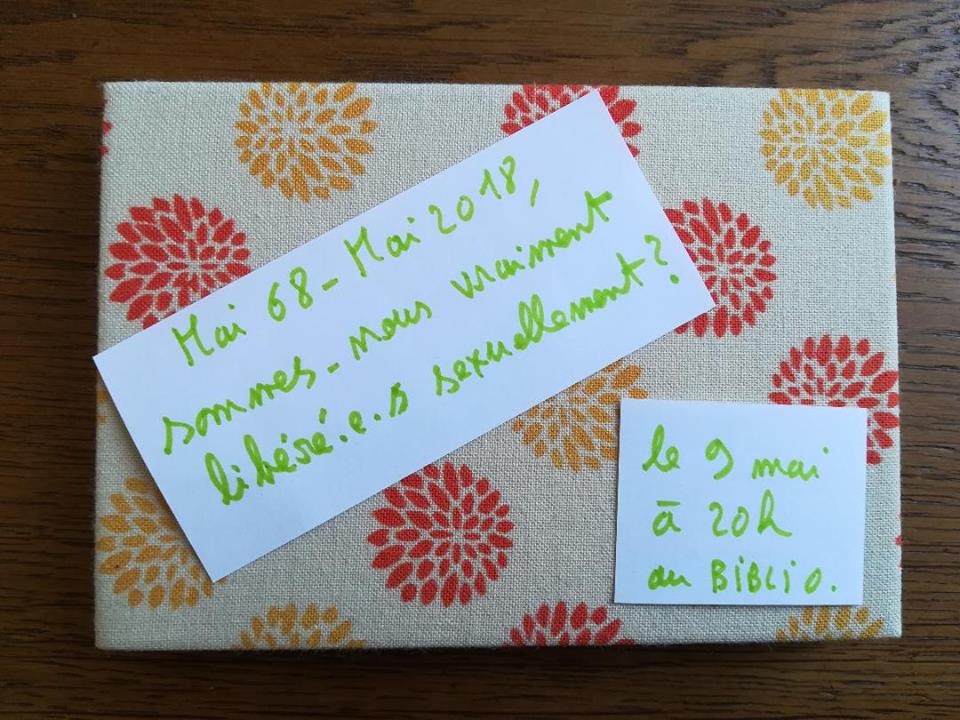 Mai 68 - Mai 2018,
sommes-nous vraiment
libéré.e.s sexuellement?
le 9 mai
à 20h
au BiBLiO.